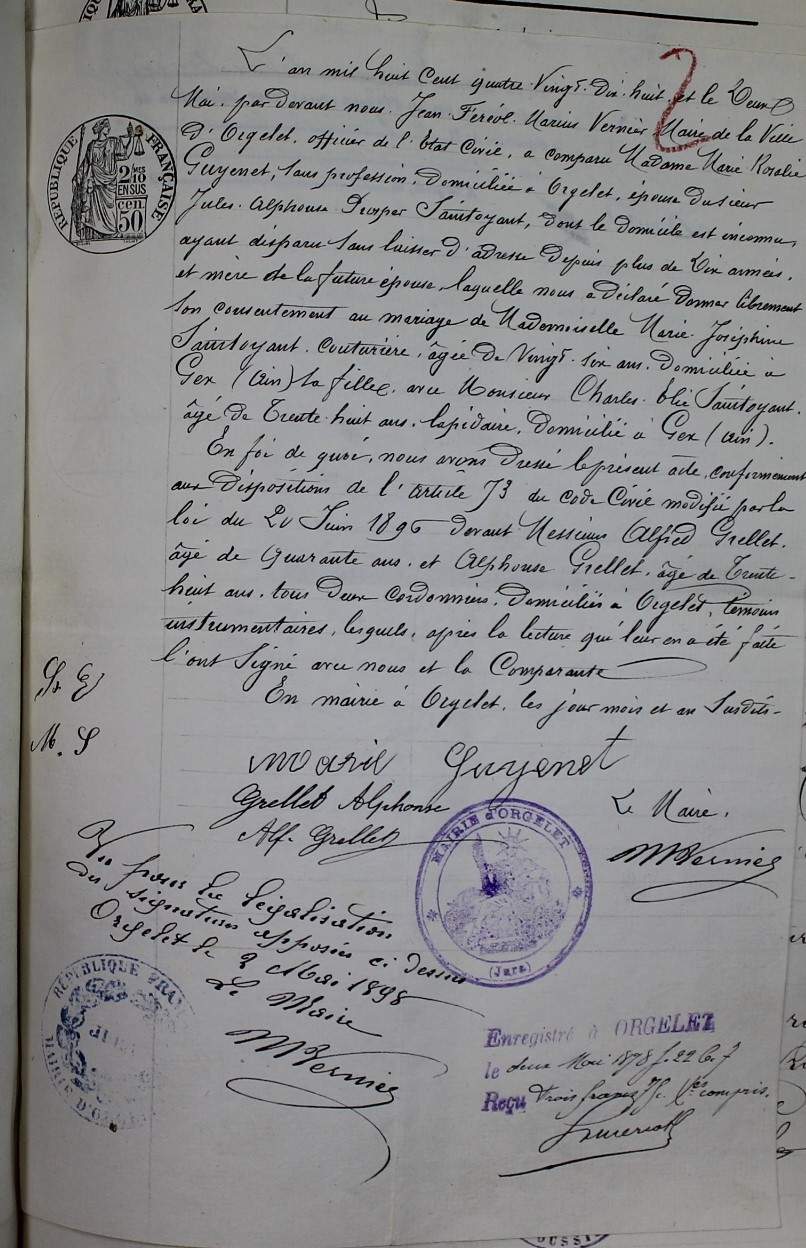 RÉPUBLIQUE FRANÇAISE
2/10 MES
EN SUS
50 cen
2
L'an mil huit cent quatre-vingt-dix-huit et le deux
Mai, par devant nous Jean Féréol Marius Vernier Maire de la Ville
d'Orgelet, officier de l'Etat Civil, a comparu Madame Marie Rosalie
Guyenet, sans profession, domiciliée à Orgelet, épouse du sieur
Jules Alphonse Prosper Saintoyant, dont le domicile est inconnu,
ayant disparu sans laisser d'adresse depuis plus de dix années,
et mère de la future épouse, laquelle nous a déclaré donner librement
son consentement au mariage de Mademoiselle Marie Joséphine
Saintoyant, couturière, âgée de vingt-six ans, domiciliée à
Gex (Ain) sa fille, avec Monsieur Charles Elie Saintoyant,
âgé de trente huit ans, lapidaire, domicilié à Gex (Ain).
En foi de quoi, nous avons dressé le présent acte, conformément
aux dispositions de l'article 73 du code Civil modifié par la
loi du 20 Juin 1896 devant Messieurs Alfred Grellet,
âgé de quarante ans, et Alphonse Grellet, âgé de trente-
huit ans, tous deux cordonniers, domiciliés à Orgelet, témoins
instrumentaires, lesquels, après la lecture qui leur en a été faite
l'ont signé avec nous et la Comparante
En mairie à Orgelet, les jour mois et an susdits
M. S
Marie Guyenet
Grellet Alphonse
Le Maire,
Alf. Grellet
MVernier
MAIRIE d'ORGELET
(Jura)
Vu pour la légalisation
des signatures apposées ci dessus
Orgelet le 2 Mai 1898
Le Maire
MVernier
RÉPUBLIQUE FRAN
MAIRIE D'O
Enregistré à ORGELET
le deux Mai 1878 f. 22 C. 7
Reçu trois francs 75c. Xes compris.